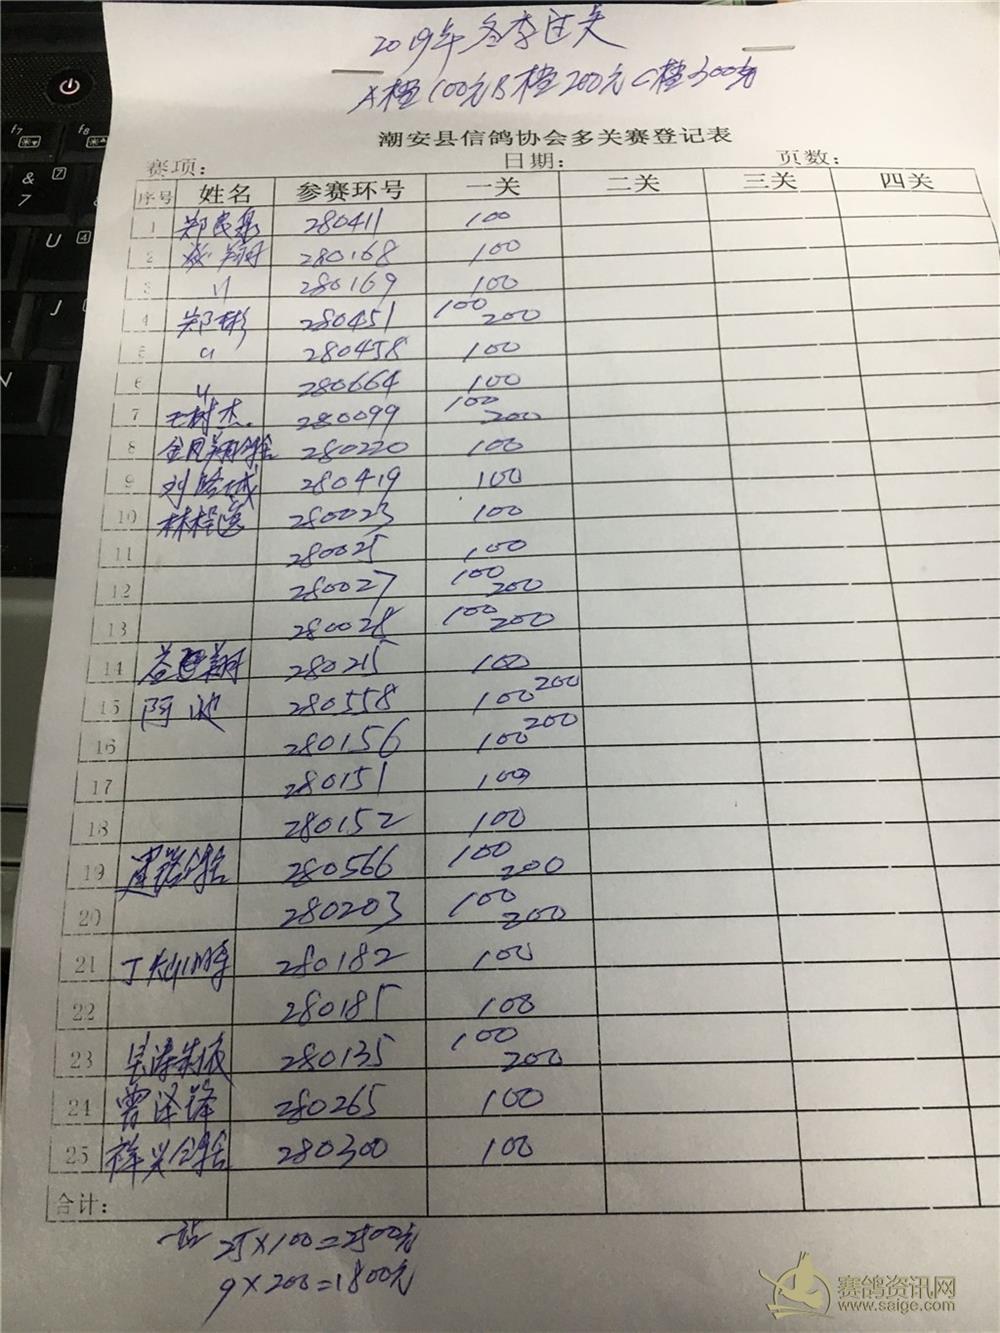 2019年冬季过关
A档100元B档200元C档300元
潮安县信鸽协会多关赛登记表
赛项： 日期： 页数：
序号 姓名 参赛环号 一关 二关 三关 四关
1 280411 100
2 280168 100
3 〃 280169 100
4 郑彬 280451 100 200
5 〃 280458 100
6 〃 280664 100
7 王树杰 280099 100 200
8 280220 100
9 280419 100
10 280023 100
11 280025 100
12 280027 100 200
13 280028 100 200
14 280215 100
15 阿池 280558 100 200
16 280156 100 200
17 280151 100
18 280152 100
19 280566 100 200
20 280203 100 200
21 280182 100
22 280185 100
23 280135 100 200
24 曾泽锋 280265 100
25 祥兴鸽舍 280300 100
合计：
25×100=2500元
9×200=1800元
赛鸽资讯网
www.saige.com
F7
F8
&
7
7
U
4
J